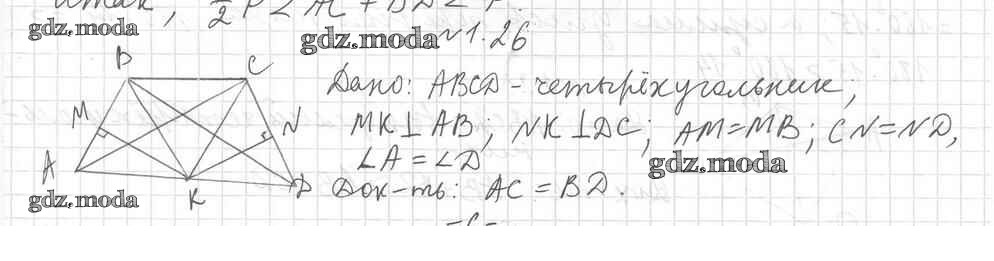 Итак, 1/2 P < AC + BD < P.
gdz.moda
gdz.moda
№1.26
B
C
M
N
A
K
D
Дано: ABCD - четырёхугольник;
MK⊥AB; NK⊥DC; AM=MB; CN=ND,
∠A=∠D
gdz.moda
Док-ть: AC=BD
gdz.moda